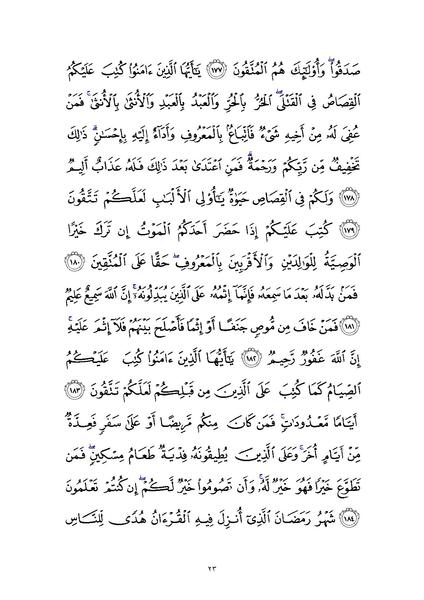 صَدَقُوا۟ ۖ وَأُو۟لَـٰٓئِكَ هُمُ ٱلْمُتَّقُونَ ﴿١٧٧﴾ يَـٰٓأَيُّهَا ٱلَّذِينَ ءَامَنُوا۟ كُتِبَ عَلَيْكُمُ
ٱلْقِصَاصُ فِى ٱلْقَتْلَى ۖ ٱلْحُرُّ بِٱلْحُرِّ وَٱلْعَبْدُ بِٱلْعَبْدِ وَٱلْأُنثَىٰ بِٱلْأُنثَىٰ ۚ فَمَنْ
عُفِىَ لَهُۥ مِنْ أَخِيهِ شَىْءٌ فَٱتِّبَاعٌۢ بِٱلْمَعْرُوفِ وَأَدَآءٌ إِلَيْهِ بِإِحْسَـٰنٍ ۗ ذَٰلِكَ
تَخْفِيفٌ مِّن رَّبِّكُمْ وَرَحْمَةٌ ۗ فَمَنِ ٱعْتَدَىٰ بَعْدَ ذَٰلِكَ فَلَهُۥ عَذَابٌ أَلِيمٌ
﴿١٧٨﴾ وَلَكُمْ فِى ٱلْقِصَاصِ حَيَوٰةٌ يَـٰٓأُو۟لِى ٱلْأَلْبَـٰبِ لَعَلَّكُمْ تَتَّقُونَ
﴿١٧٩﴾ كُتِبَ عَلَيْكُمْ إِذَا حَضَرَ أَحَدَكُمُ ٱلْمَوْتُ إِن تَرَكَ خَيْرًا
ٱلْوَصِيَّةُ لِلْوَٰلِدَيْنِ وَٱلْأَقْرَبِينَ بِٱلْمَعْرُوفِ ۖ حَقًّا عَلَى ٱلْمُتَّقِينَ ﴿١٨٠﴾
فَمَنۢ بَدَّلَهُۥ بَعْدَ مَا سَمِعَهُۥ فَإِنَّمَآ إِثْمُهُۥ عَلَى ٱلَّذِينَ يُبَدِّلُونَهُۥٓ ۚ إِنَّ ٱللَّهَ سَمِيعٌ عَلِيمٌ
﴿١٨١﴾ فَمَنْ خَافَ مِن مُّوصٍ جَنَفًا أَوْ إِثْمًا فَأَصْلَحَ بَيْنَهُمْ فَلَآ إِثْمَ عَلَيْهِ ۚ
إِنَّ ٱللَّهَ غَفُورٌ رَّحِيمٌ ﴿١٨٢﴾ يَـٰٓأَيُّهَا ٱلَّذِينَ ءَامَنُوا۟ كُتِبَ عَلَيْكُمُ
ٱلصِّيَامُ كَمَا كُتِبَ عَلَى ٱلَّذِينَ مِن قَبْلِكُمْ لَعَلَّكُمْ تَتَّقُونَ ﴿١٨٣﴾
أَيَّامًا مَّعْدُودَٰتٍ ۚ فَمَن كَانَ مِنكُم مَّرِيضًا أَوْ عَلَىٰ سَفَرٍ فَعِدَّةٌ
مِّنْ أَيَّامٍ أُخَرَ ۚ وَعَلَى ٱلَّذِينَ يُطِيقُونَهُۥ فِدْيَةٌ طَعَامُ مِسْكِينٍ ۖ فَمَن
تَطَوَّعَ خَيْرًا فَهُوَ خَيْرٌ لَّهُۥ ۚ وَأَن تَصُومُوا۟ خَيْرٌ لَّكُمْ ۖ إِن كُنتُمْ تَعْلَمُونَ
﴿١٨٤﴾ شَهْرُ رَمَضَانَ ٱلَّذِىٓ أُنزِلَ فِيهِ ٱلْقُرْءَانُ هُدًى لِّلنَّاسِ
٢٣